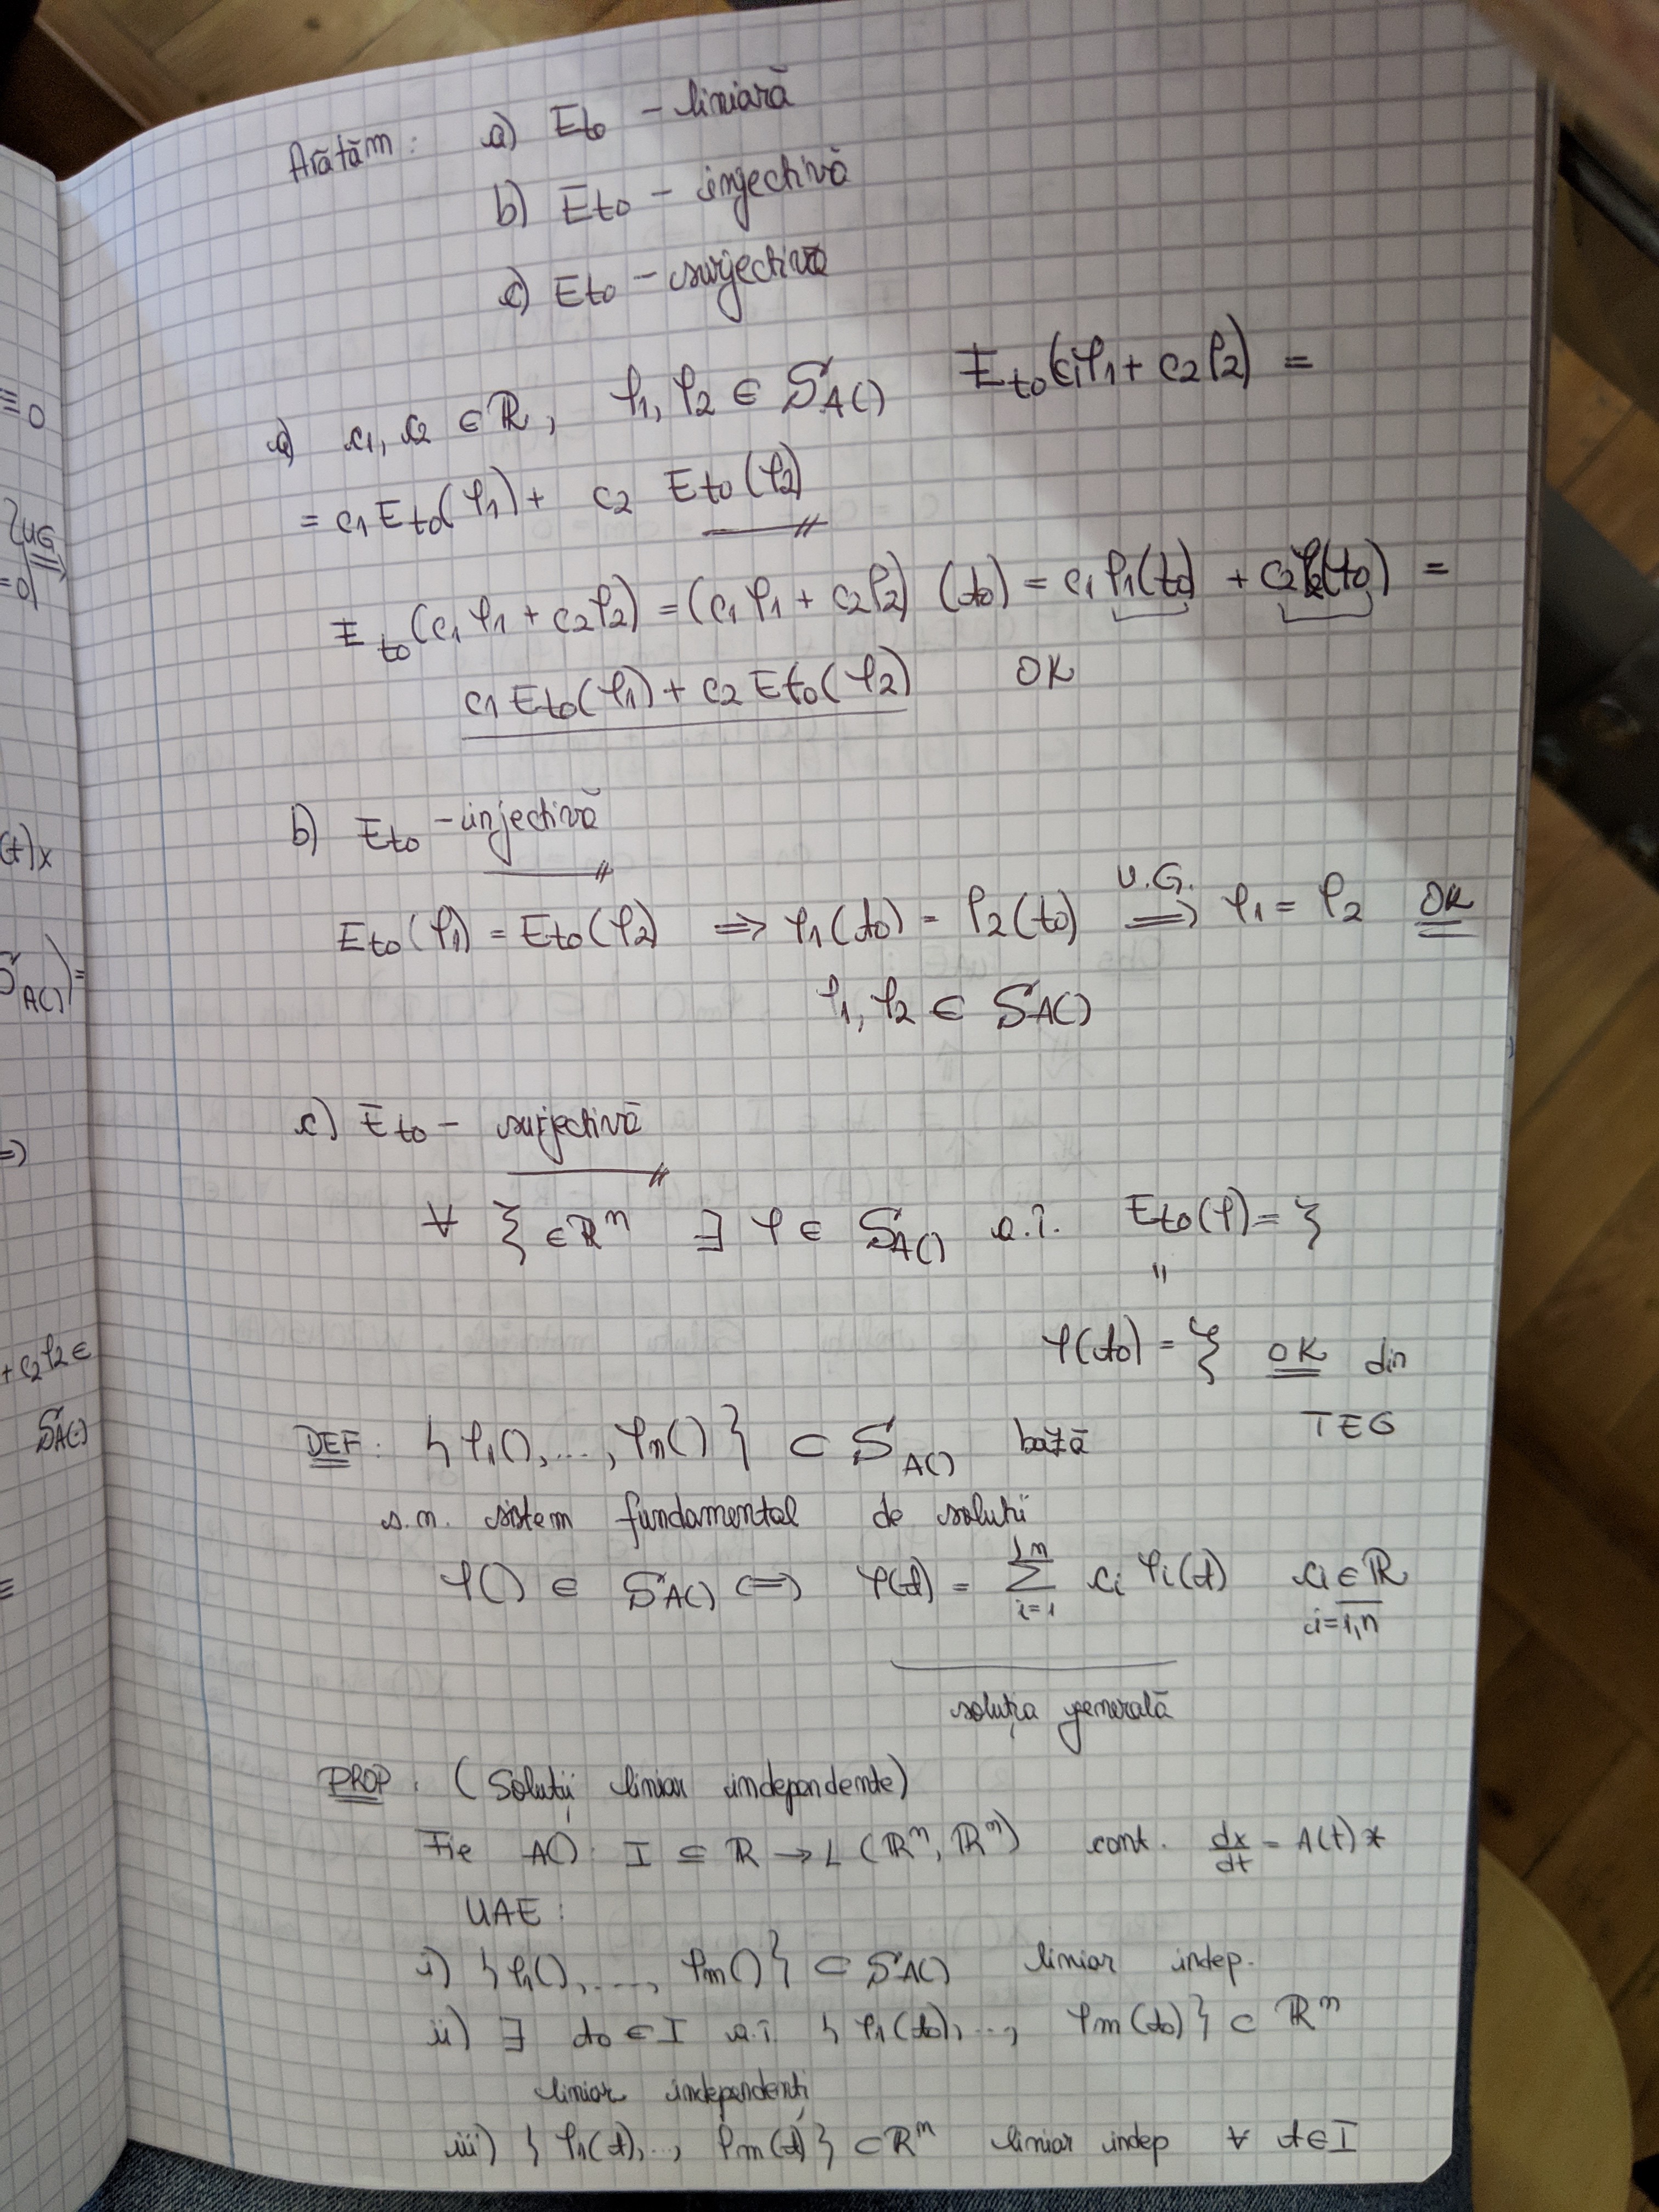 Arătăm: a) Et0 – liniară
b) Et0 – injectivă
c) Et0 – surjectivă
a) c1, c2 ∈ ℝ, φ1, φ2 ∈ SA() Et0(c1φ1 + c2φ2) =
= c1 Et0(φ1) + c2 Et0(φ2)
Et0(c1φ1 + c2φ2) = (c1φ1 + c2φ2)(t0) = c1φ1(t0) + c2φ2(t0) =
c1Et0(φ1) + c2Et0(φ2) OK
b) Et0 – injectivă
U.G.
Et0(φ1) = Et0(φ2) ⇒ φ1(t0) = φ2(t0) ⟹ φ1 = φ2 OK
φ1, φ2 ∈ SA()
c) Et0 – surjectivă
∀ ξ ∈ ℝn ∃ φ ∈ SA() a.î. Et0(φ) = ξ
"
φ(t0) = ξ OK din
TEG
DEF: {φ1(),..., φn()} ⊂ SA() bază
s.n. sistem fundamental de soluții
φ() ∈ SA() ⇔ φ(t) = n∑i=1 ci φi(t) ci ∈ ℝ
i=1,n
soluția generală
PROP: (Soluții liniar independente)
Fie A(): I ⊆ ℝ → L(ℝn, ℝn) cont. dx/dt = A(t)x
UAE:
i) {φ1(),...., φm()} ⊂ SA() liniar indep.
ii) ∃ t0 ∈ I a.î. {φ1(t0),..., φm(t0)} ⊂ ℝn
liniar independenți
iii) {φ1(t),..., φm(t)} ⊂ ℝn liniar indep ∀ t ∈ I
≡ 0
UG
=0
(t)x
SA() =
=)
+ c2φ2 ∈
SA(·)
=